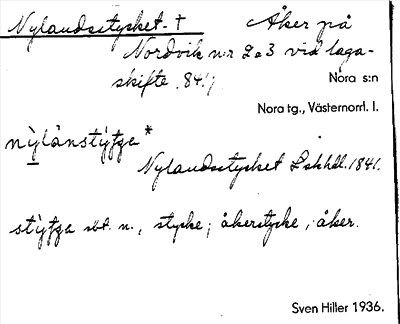 Nylandsstycket †
Åker på
Nordvik n:r 2 o 3 vid laga-
skifte 1841
Nora s:n
Nora tg., Västernorrl. l.
Nylandsstycket Lskhdl. 1841.
sbst. n., stycke; åkerstycke, åker.
Sven Hiller 1936.